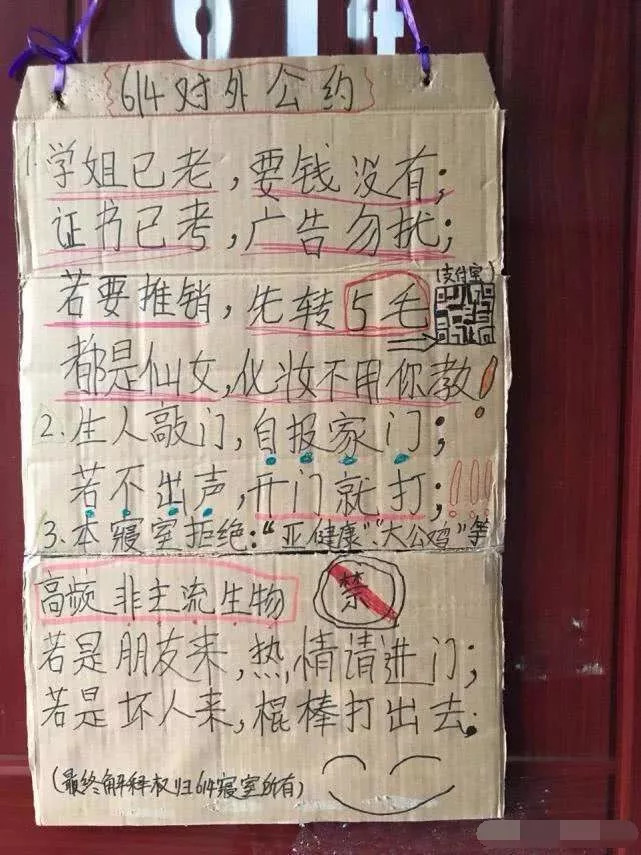 614
614对外公约
1.学姐已老,要钱没有;
证书已考,广告勿扰;
若要推销,先转5毛
(支付宝)
都是仙女,化妆不用你教!
2.生人敲门,自报家门;
若不出声,开门就打;!!!
3.本寝室拒绝:“亚健康”、“大公鸡”等
高频非主流生物
禁
若是朋友来,热情请进门;
若是坏人来,棍棒打出去.
(最终解释权归614寝室所有)